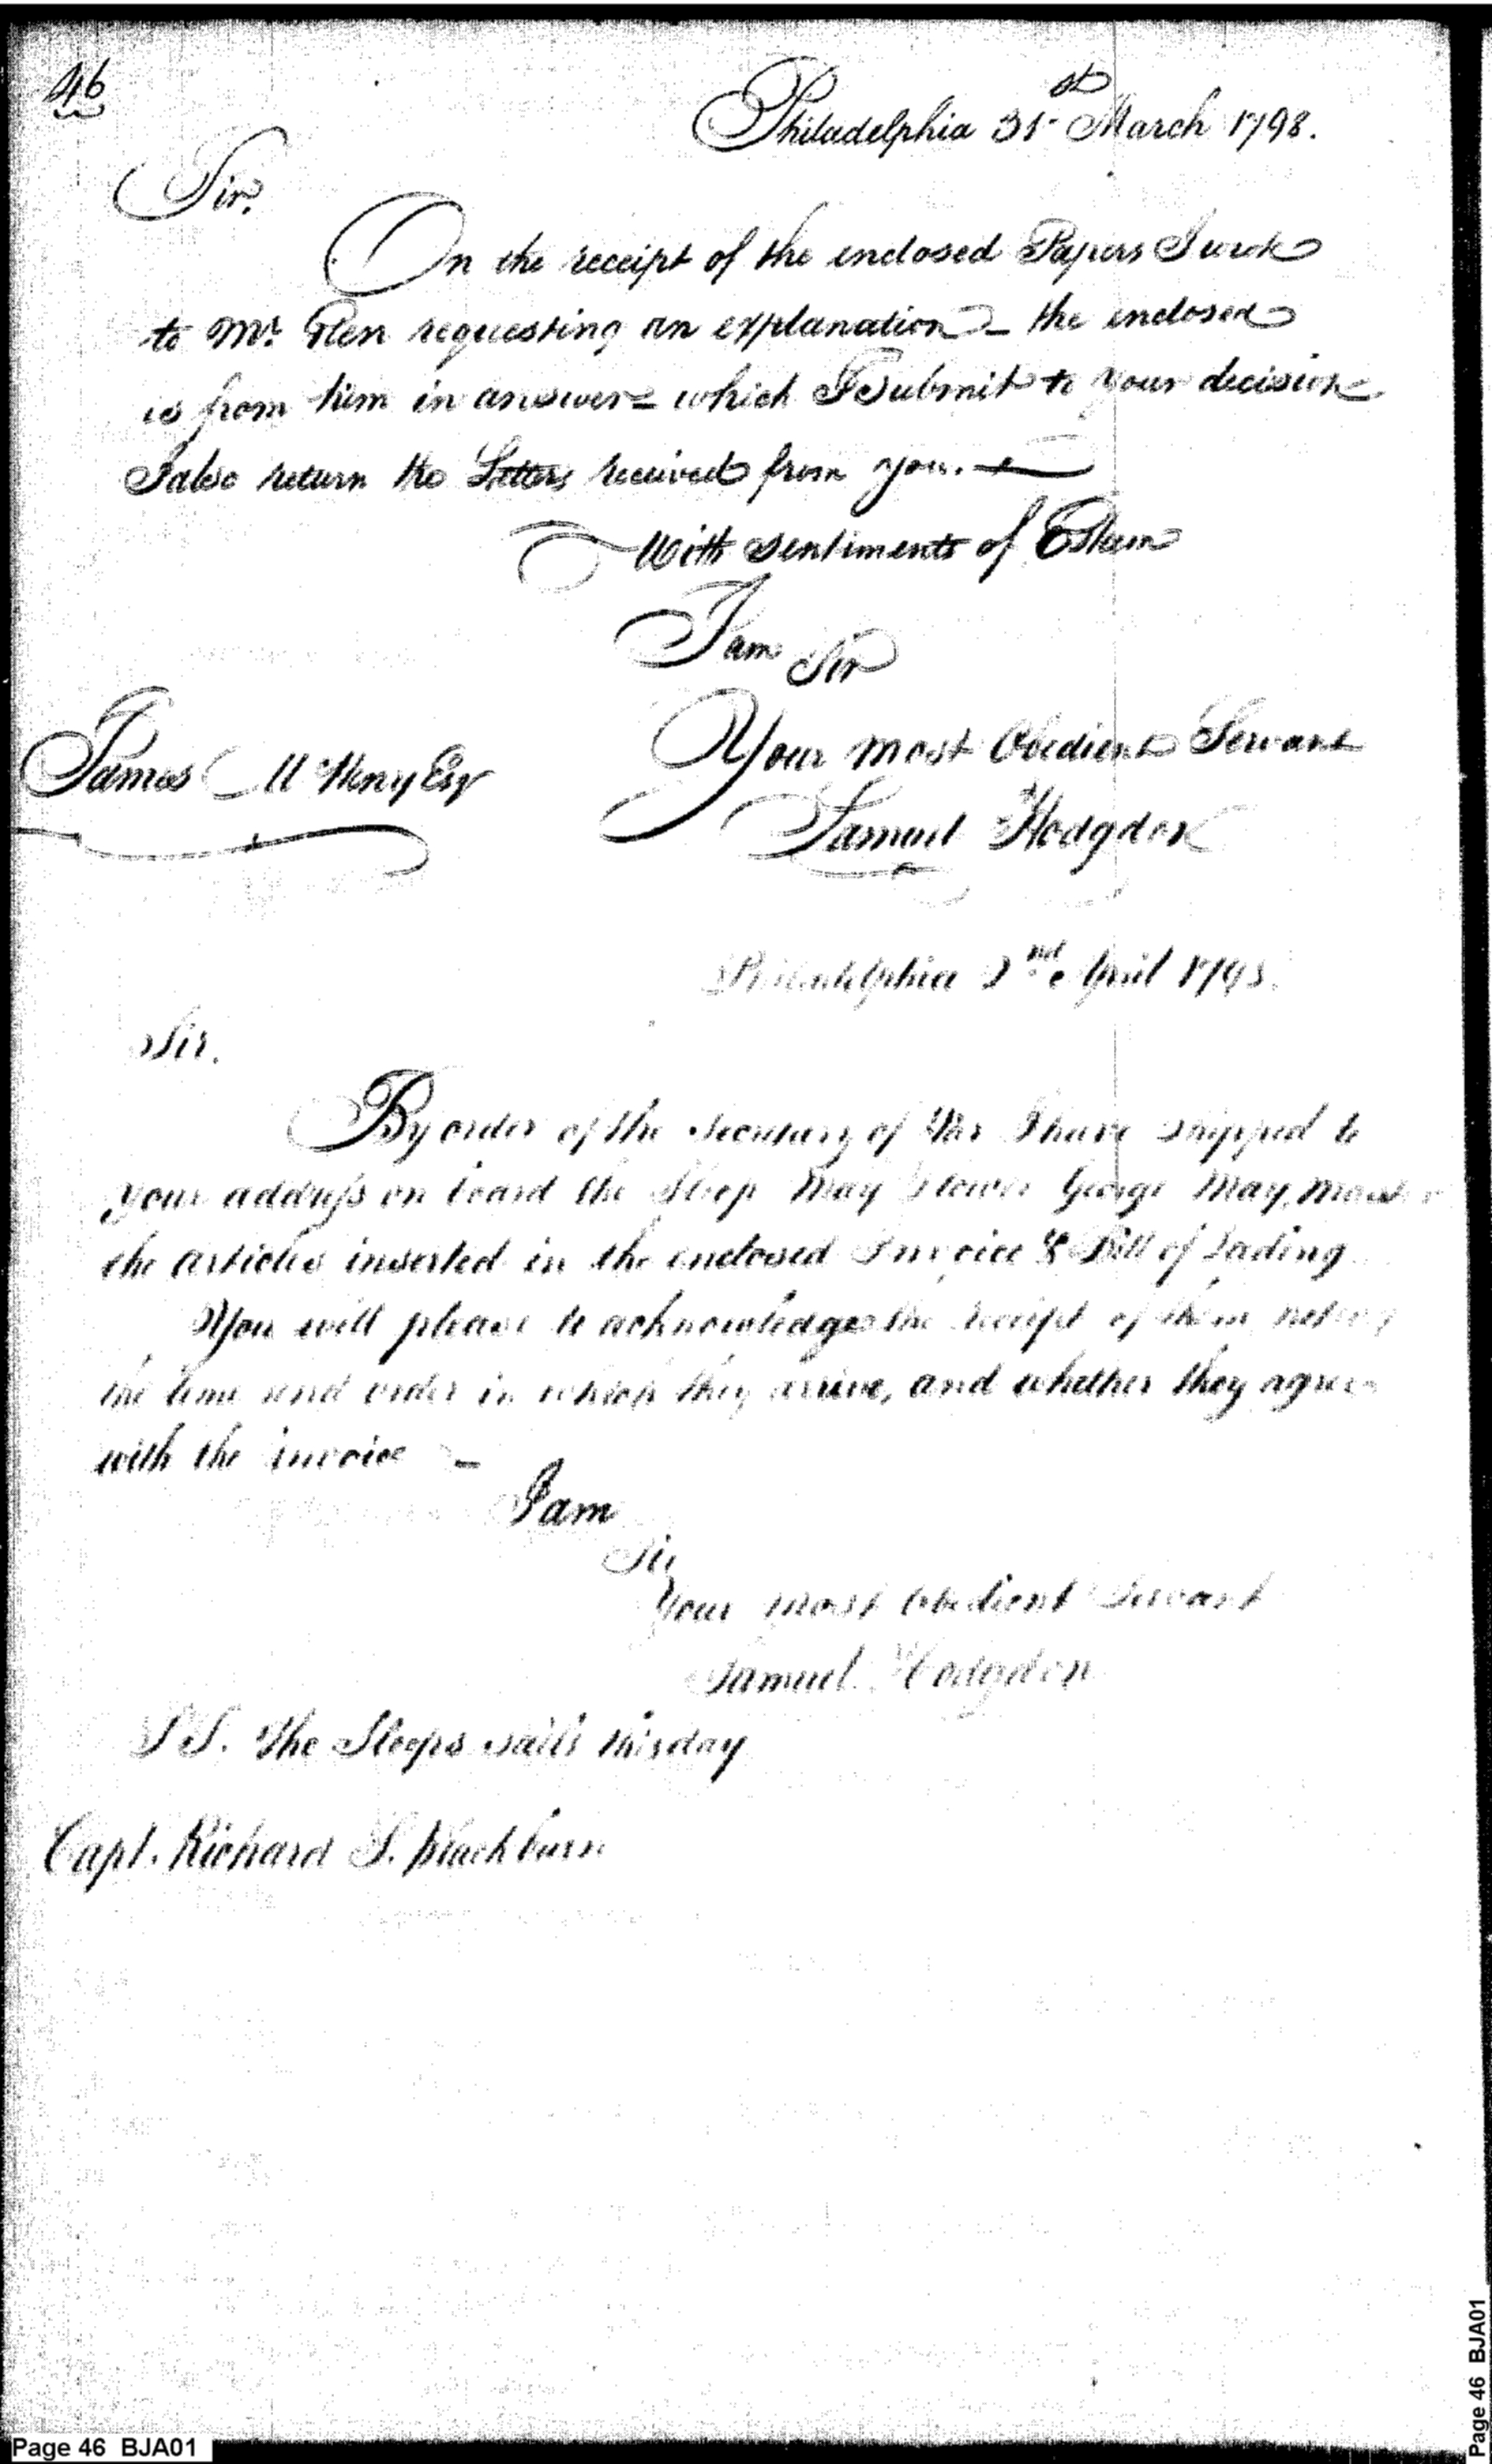 46
Philadelphia 31st March 1798.
Sir.
On the receipt of the enclosed Papers I wrote
to Mr. Glen requesting an explanation – the enclosed
is from him in answer – which I Submit to your decision
I also return the Letters received from you. –
With sentiments of Esteem
I am
Sir
Your most Obedient Servant
James McHenry Esqr
Samuel Hodgdon
Philadelphia 2nd April 1798.
Sir.
By order of the Secretary of War I have shipped to
your address on board the Sloop May Flower George May, Master
the articles inserted in the enclosed Invoice & Bill of Lading
You will please to acknowledge the receipt of them noting
the time and order in which they arrive, and whether they agree
with the invoice –
I am
Sir
Your most obedient Servant
Samuel Hodgdon
P.S. The Sloops sails this day
Capt. Richard S. Blackburn
Page 46 BJA01
Page 46 BJA01